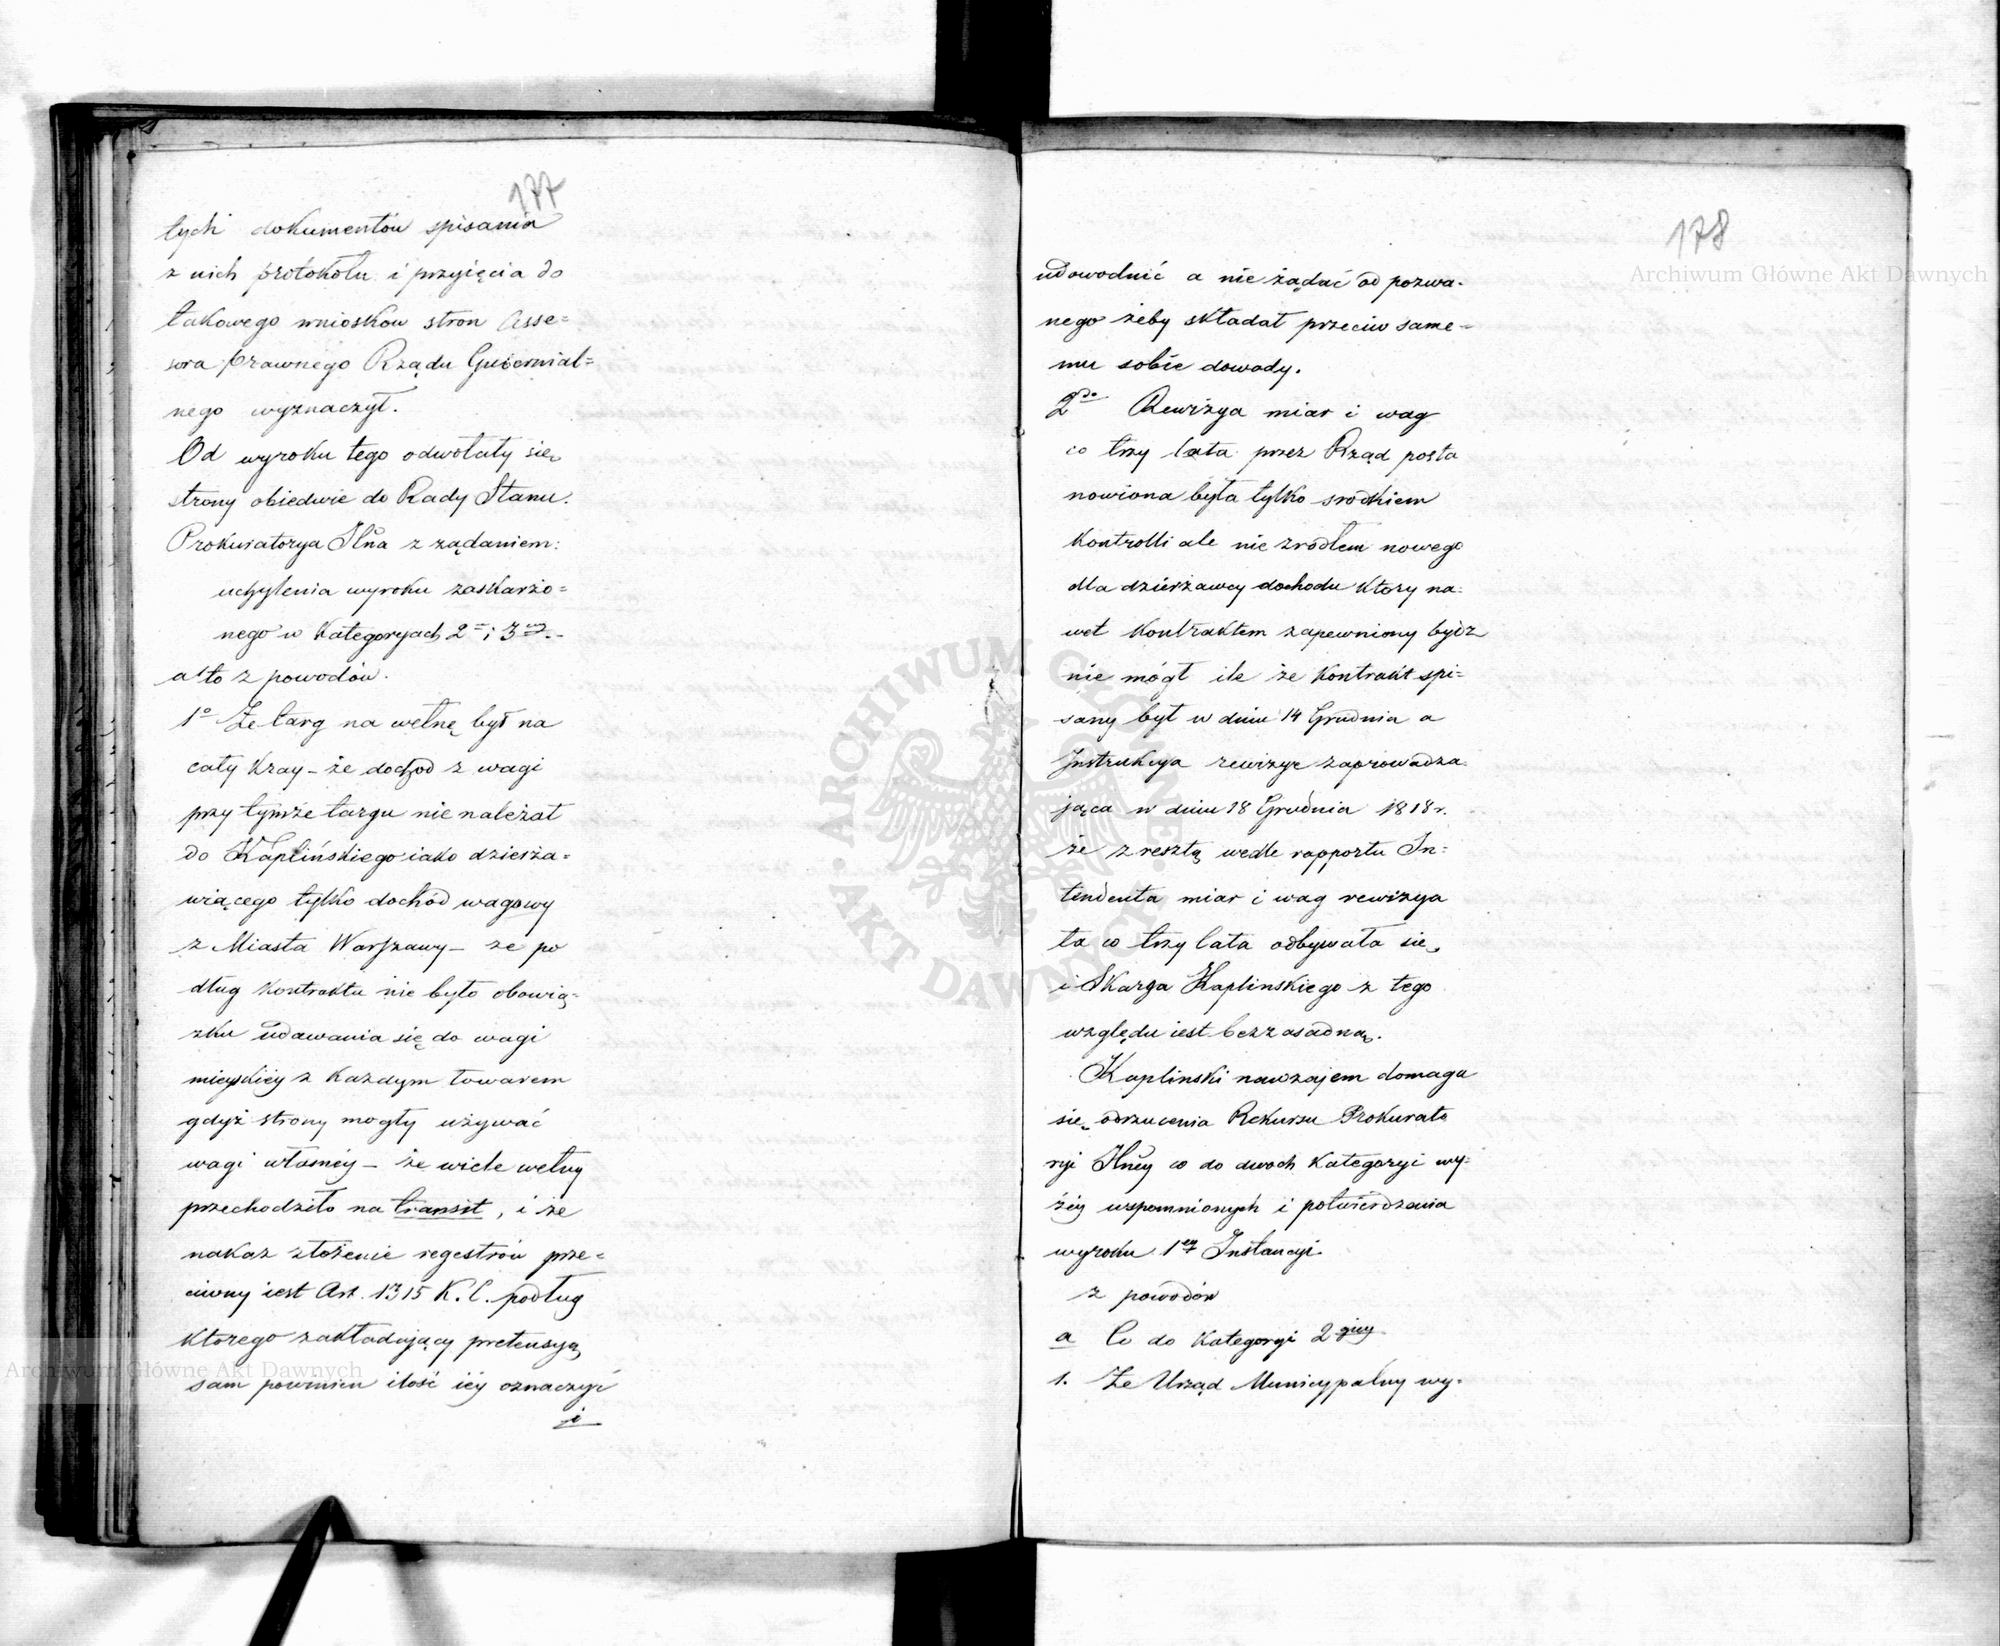 177
tych dokumentów spisania
z nich protokołu i przyięcia do
takowego wniosków stron Asse=
sora prawnego Rządu Gubernial=
nego wyznaczył.
Od wyroku tego odwołały się
strony obiedwie do Rady Stanu.
Prokuratorya z żądaniem:
uchylenia wyroku zaskarżo=
nego w Kategoryach 2 i 3
a to z powodów.
1° Że targ na wełnę był na
cały Kray – że dochod z wagi
przy tymże targu nie należał
do Kaplińskiego iako dzierża=
wiącego tylko dochód wagowy
z Miasta Warszawy – że po
dług Kontraktu nie było obowią=
zku udawania się do wagi
mieyskiéy z Każdym towarem
gdyż strony mogły używać
wagi własnéy – że wiele wełny
przechodziło na transit, i że
nakaz złożenie regestrów prze=
ciwny iest Art. 1315 K. C. podług
Ktorego zakładający pretensyą
sam powinien ilość iéy oznaczyć
i
178
udowodnić a nie żądać od pozwa-
nego żeby składał przeciw same-
mu sobie dowody.
2do Rewizya miar i wag
co trzy lata przez Rząd posta
nowiona była tylko srodkiem
Kontrolli ale nie zrodłem nowego
dla dzierżawcy dochodu Ktory na=
wet Kontraktem zapewniony bydz
nie mógł ile że Kontrakt spi=
sany był w dniu 14 Grudnia a
Instrukcya rewizye zaprowadza
jąca w dniu 18 Grudnia 1818 r.
że zresztą wedle rapportu In=
tendenta miar i wag rewizya
ta co trzy lata odbywała się
i Skarga Kaplinskiego z tego
względu iest bezzasadną.
Kaplinski nawzajem domaga
się odrzucenia Rekursu Prokurato
ryi co do dwoch Kategoryi wy=
żéy wspomnionych i potwierdzenia
wyroku 1éy Instancyi
z powodów
a Co do Kategoryi 2giey
1. Że Urząd Municypalny wy=
Archiwum Główne Akt Dawnych
Archiwum Główne Akt Dawnych
ARCHIWUM GŁÓWNE AKT DAWNYCH